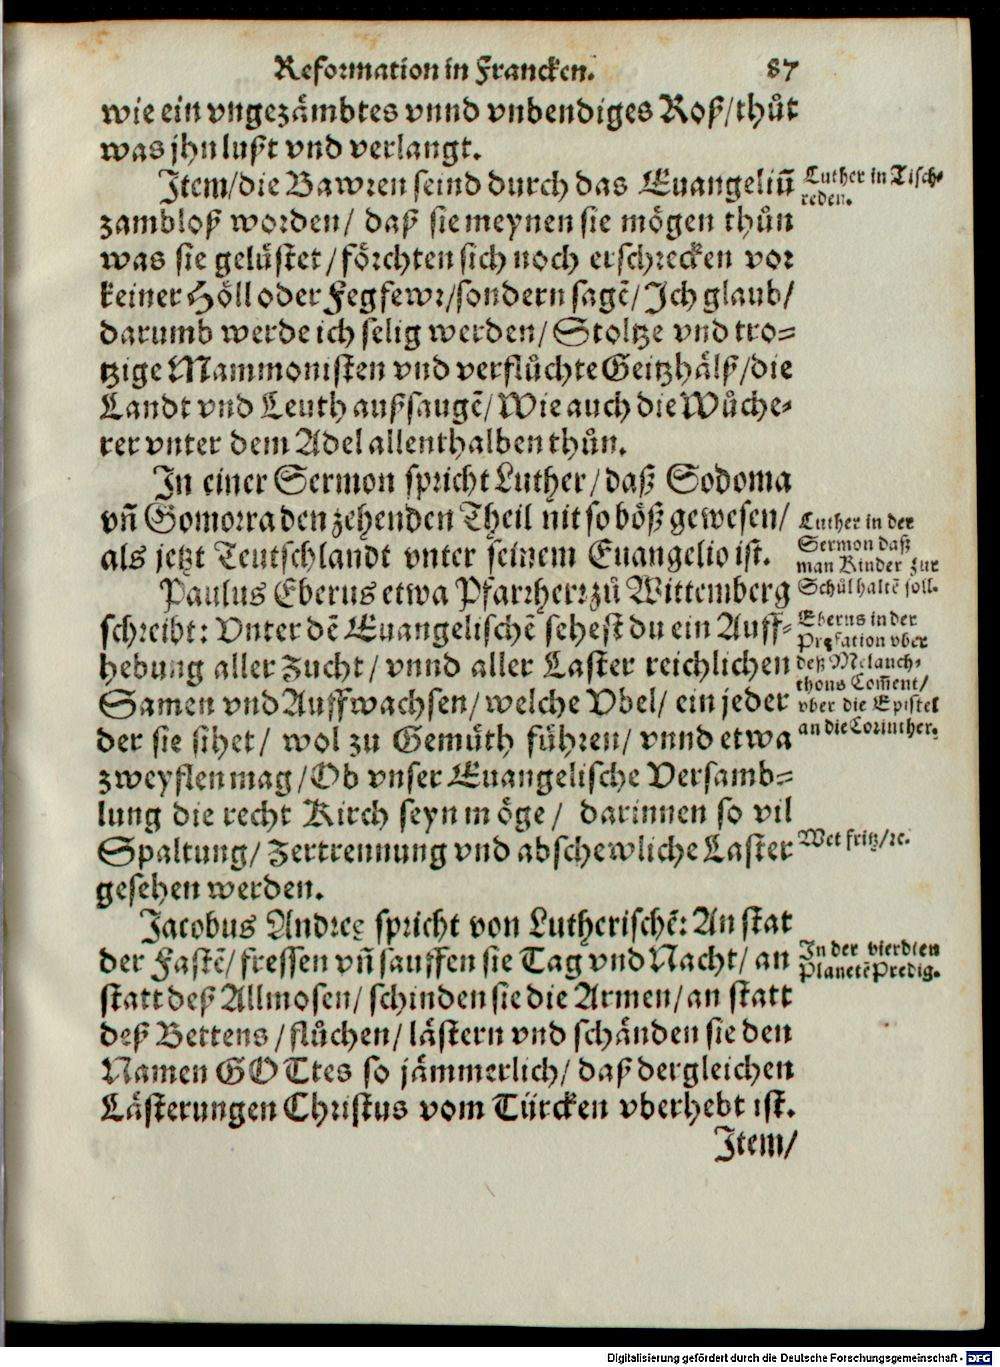 Reformation in Francken. 87
wie ein vngezämbtes vnnd vnbendiges Roß/thůt
was jhn lußt vnd verlangt.
Item/die Bawren seind durch das Euangeliũ
zambloß worden/ daß sie meynen sie mögen thůn
was sie gelüstet/förchten sich noch erschrecken vor
keiner Höll oder Fegfewr/sondern sagẽ/Ich glaub/
darumb werde ich selig werden/Stoltze vnd tro-
tzige Mammonisten vnd verflůchte Geitzhälß/die
Landt vnd Leuth außsaugẽ/Wie auch die Wůche-
rer vnter dem Adel allenthalben thůn.
Luther in Tisch-
reden.
In einer Sermon spricht Luther/daß Sodoma
vñ Gomorra den zehenden Theil nit so böß gewesen/
als jetzt Teutschlandt vnter seinem Euangelio ist.
Luther in der
Sermon daß
man Kinder zur
Schůl haltẽ soll.
Paulus Eberus etwa Pfarrherr zů Wittemberg
schreibt: Vnter dẽ Euangelischẽ sehest du ein Auff-
hebung aller Zucht/ vnnd aller Laster reichlichen
Samen vnd Auffwachsen/welche Vbel/ ein jeder
der sie sihet/ wol zu Gemüth führen/ vnnd etwa
zweyflen mag/Ob vnser Euangelische Versamb-
lung die recht Kirch seyn möge/ darinnen so vil
Spaltung/ Zertrennung vnd abschewliche Laster
gesehen werden.
Eberus in der
Pręfation vber
deß Melanch-
thons Com̃ent/
vber die Epistel
an die Corinther.
Wet fritz/ꝛc.
Jacobus Andreę spricht von Lutherischẽ: An stat
der Fastẽ/fressen vñ sauffen sie Tag vnd Nacht/ an
statt deß Allmosen/ schinden sie die Armen/an statt
deß Bettens/flůchen/lästern vnd schänden sie den
Namen GOTtes so jämmerlich/ daß dergleichen
Lästerungen Christus vom Türcken vberhebt ist.
In der vierdten
Planetẽ Predig.
Item/
Digitalisierung gefördert durch die Deutsche Forschungsgemeinschaft - DFG